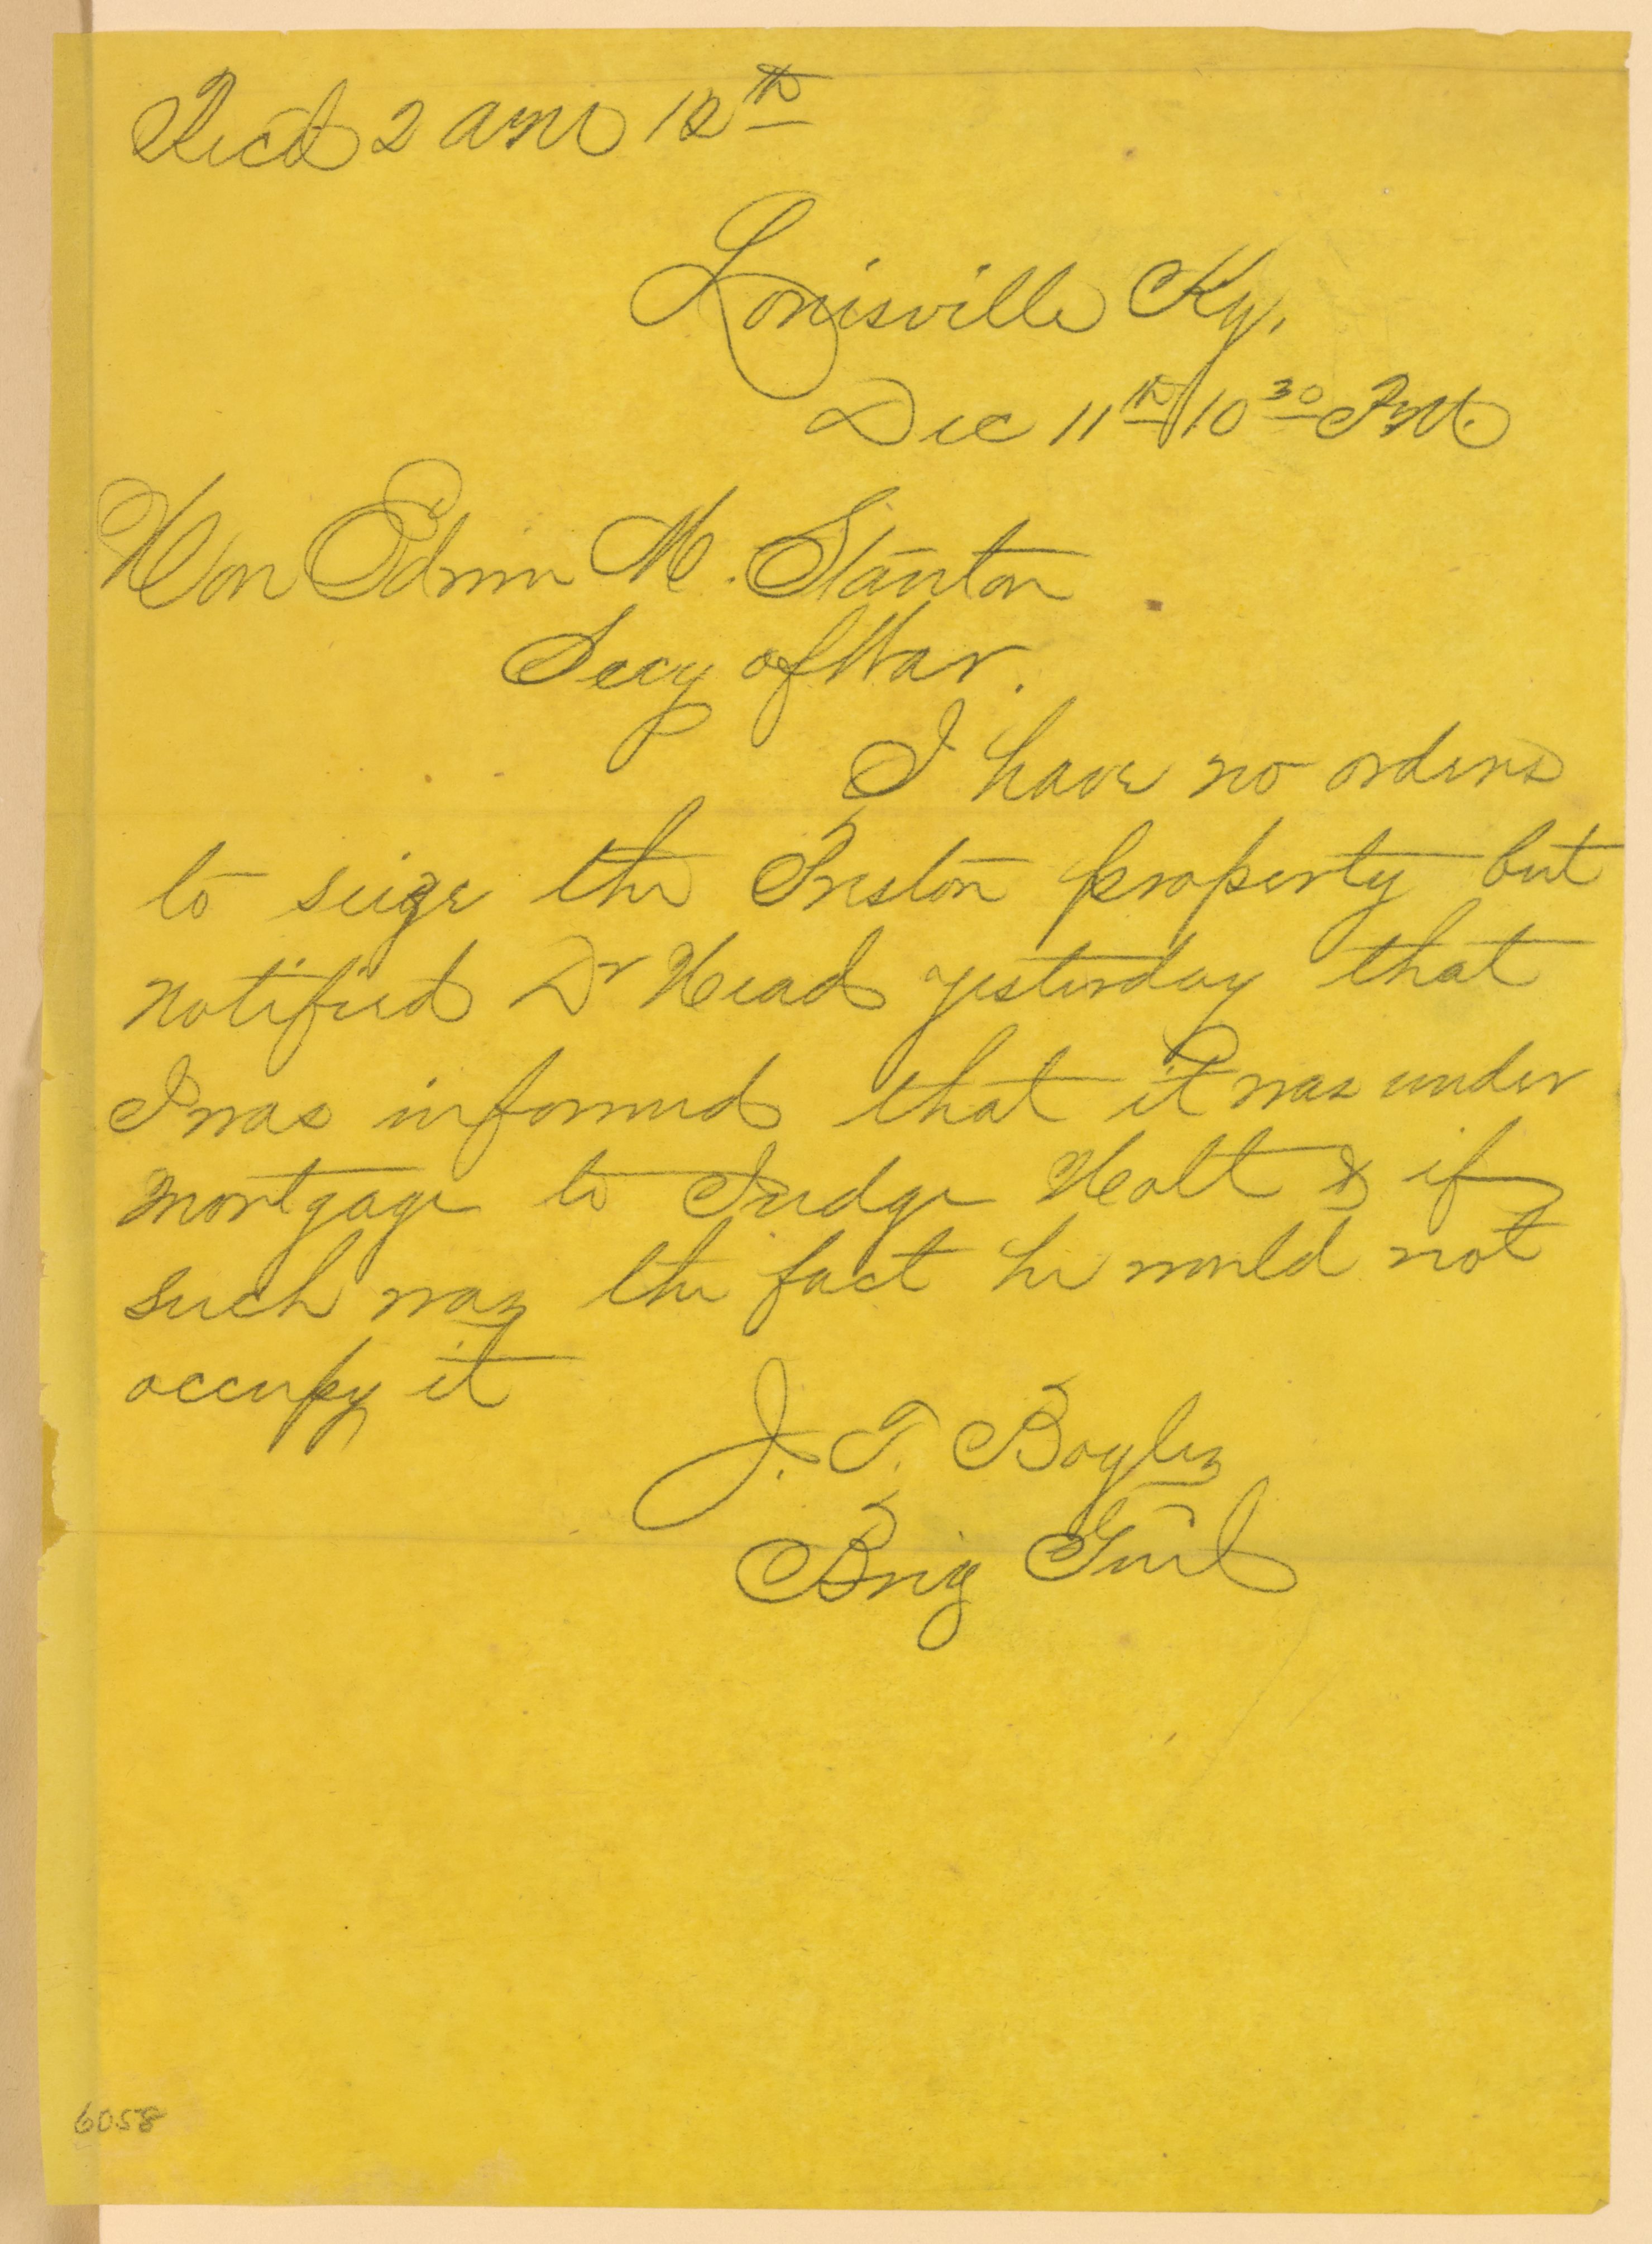 Recd 2 am 12th
Louisville Ky.
Dec 11th 10 30 PM.
Hon Edwin M. Stanton
Secy of War.
I have no orders
to seize the Preston property but
notified Dr Head yesterday that
I was informed that it was under
mortgage to Judge Holt & if
such was the fact he would not
occupy it
J. T. Boyle
Brig Genl
6058